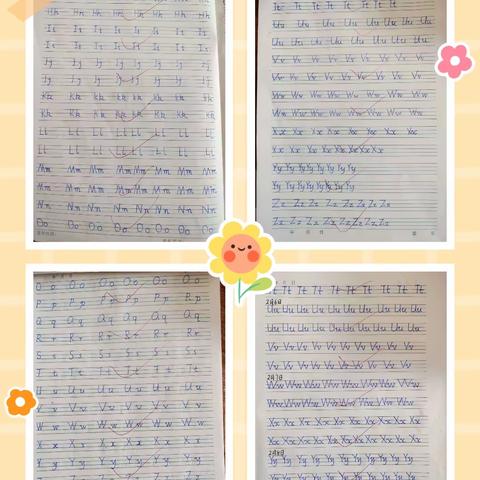 Hh Hh Hh Hh Hh Hh Hh
Ii Ii Ii Ii Ii Ii Ii
Ii Ii Ii Ii Ii Ii Ii
Jj Jj Jj Jj Jj Jj Jj
Jj Jj Jj Jj Jj Jj Jj
Kk Kk Kk Kk Kk Kk Kk
Kk Kk Kk Kk Kk Kk Kk
Ll Ll Ll Ll Ll Ll Ll
Ll Ll Ll Ll Ll Ll Ll
Mm Mm Mm Mm Mm Mm Mm
Mm Mm Mm Mm Mm Mm Mm
Nn Nn Nn Nn Nn Nn Nn
Nn Nn Nn Nn Nn Nn Nn
Oo Oo Oo Oo Oo Oo Oo
Tt Tt Tt Tt Tt Tt Tt
Uu Uu Uu Uu Uu Uu Uu
Uu Uu Uu Uu Uu Uu Uu
Vv Vv Vv Vv Vv Vv Vv Vv
Vv Vv Vv Vv Vv Vv Vv Vv
Ww Ww Ww Ww Ww Ww Ww Ww
Ww Ww Ww Ww Ww Ww Ww Ww
Xx Xx Xx Xx Xx Xx Xx
Xx Xx Xx Xx Xx Xx Xx
Yy Yy Yy Yy Yy Yy Yy
Yy Yy Yy Yy Yy Yy Yy
Zz Zz Zz Zz Zz Zz Zz
Zz Zz Zz Zz Zz Zz Zz
Oo Oo Oo Oo Oo Oo
Pp Pp Pp Pp Pp Pp
Qq Qq Qq Qq Qq Qq
Rr Rr Rr Rr Rr Rr
Ss Ss Ss Ss Ss Ss
Tt Tt Tt Tt Tt Tt
Uu Uu Uu Uu Uu Uu
Vv Vv Vv Vv Vv Vv
Ww Ww Ww Ww Ww Ww
Xx Xx Xx Xx Xx Xx
Yy Yy Yy Yy Yy Yy
Tt Tt Tt Tt Tt Tt Tt Tt Tt
2月6日
Uu Uu Uu Uu Uu Uu Uu Uu
Uu Uu Uu Uu Uu Uu Uu Uu
Vv Vv Vv Vv Vv Vv Vv Vv
Vv Vv Vv Vv Vv Vv Vv Vv
2月7日
Ww Ww Ww Ww Ww Ww Ww Ww
Ww Ww Ww Ww Ww Ww Ww Ww
Xx Xx Xx Xx Xx Xx Xx Xx Xx
Xx Xx Xx Xx Xx Xx Xx Xx Xx
2月8日
Yy Yy Yy Yy Yy Yy Yy Yy Yy
Yy Yy Yy Yy Yy Yy Yy Yy Yy